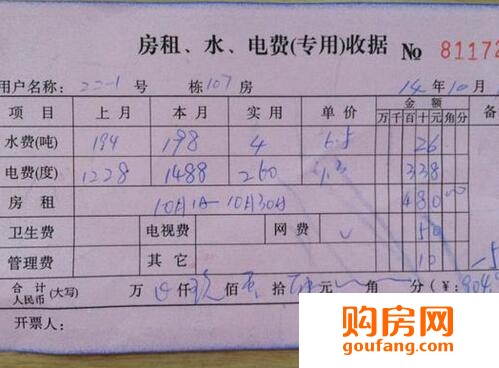 房租、水、电费(专用)收据 No 81172
用户名称: 22-1 号 栋 107 房 14 年 10 月
项目 上月 本月 实用 单价 金额 备
万 千 百 十 元 角 分
水费(吨) 194 198 4 6.5 26
电费(度) 1228 1488 260 1.3 338
房租 10月1日-10月30日 480 00
卫生费 电视费 网费 50
管理费 其它 10
合计人民币(大写) 万 仟 佰 拾 元 角 分(¥: 904
开票人:
购房网
goufang.com